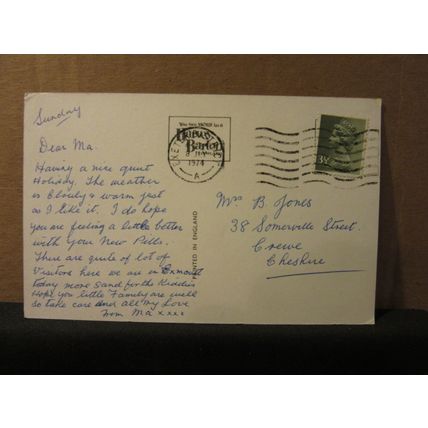 Sunday
Dear Ma.
Having a nice quiet
Holiday. The weather
is Cloudy & warm just
as I like it. I do hope
you are feeling a little better
with your New Pills.
There are quite of lot of
Visitors here we are in Exmouth
today more Sand for the Kiddies
Hope you little Family are well
so take care and all my Love
From Ma xxxx
EXETER
1974
A
PRINTED IN ENGLAND
3½
Mrs B. Jones
38 Somerville Street.
Crewe
Cheshire